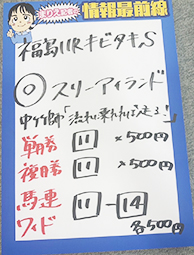 情報最前線
福島11RキビタキS
◎スリーアイランド
中竹師「流れに乗れれば走る!」
単勝 11 ×500円
複勝 11 ×500円
馬連 11-14
ワイド 各500円